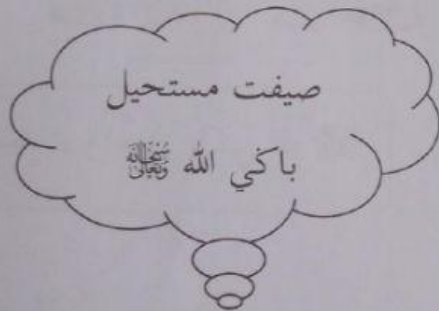 صيفت مستحيل
باݢي الله سبحانه وتعالى